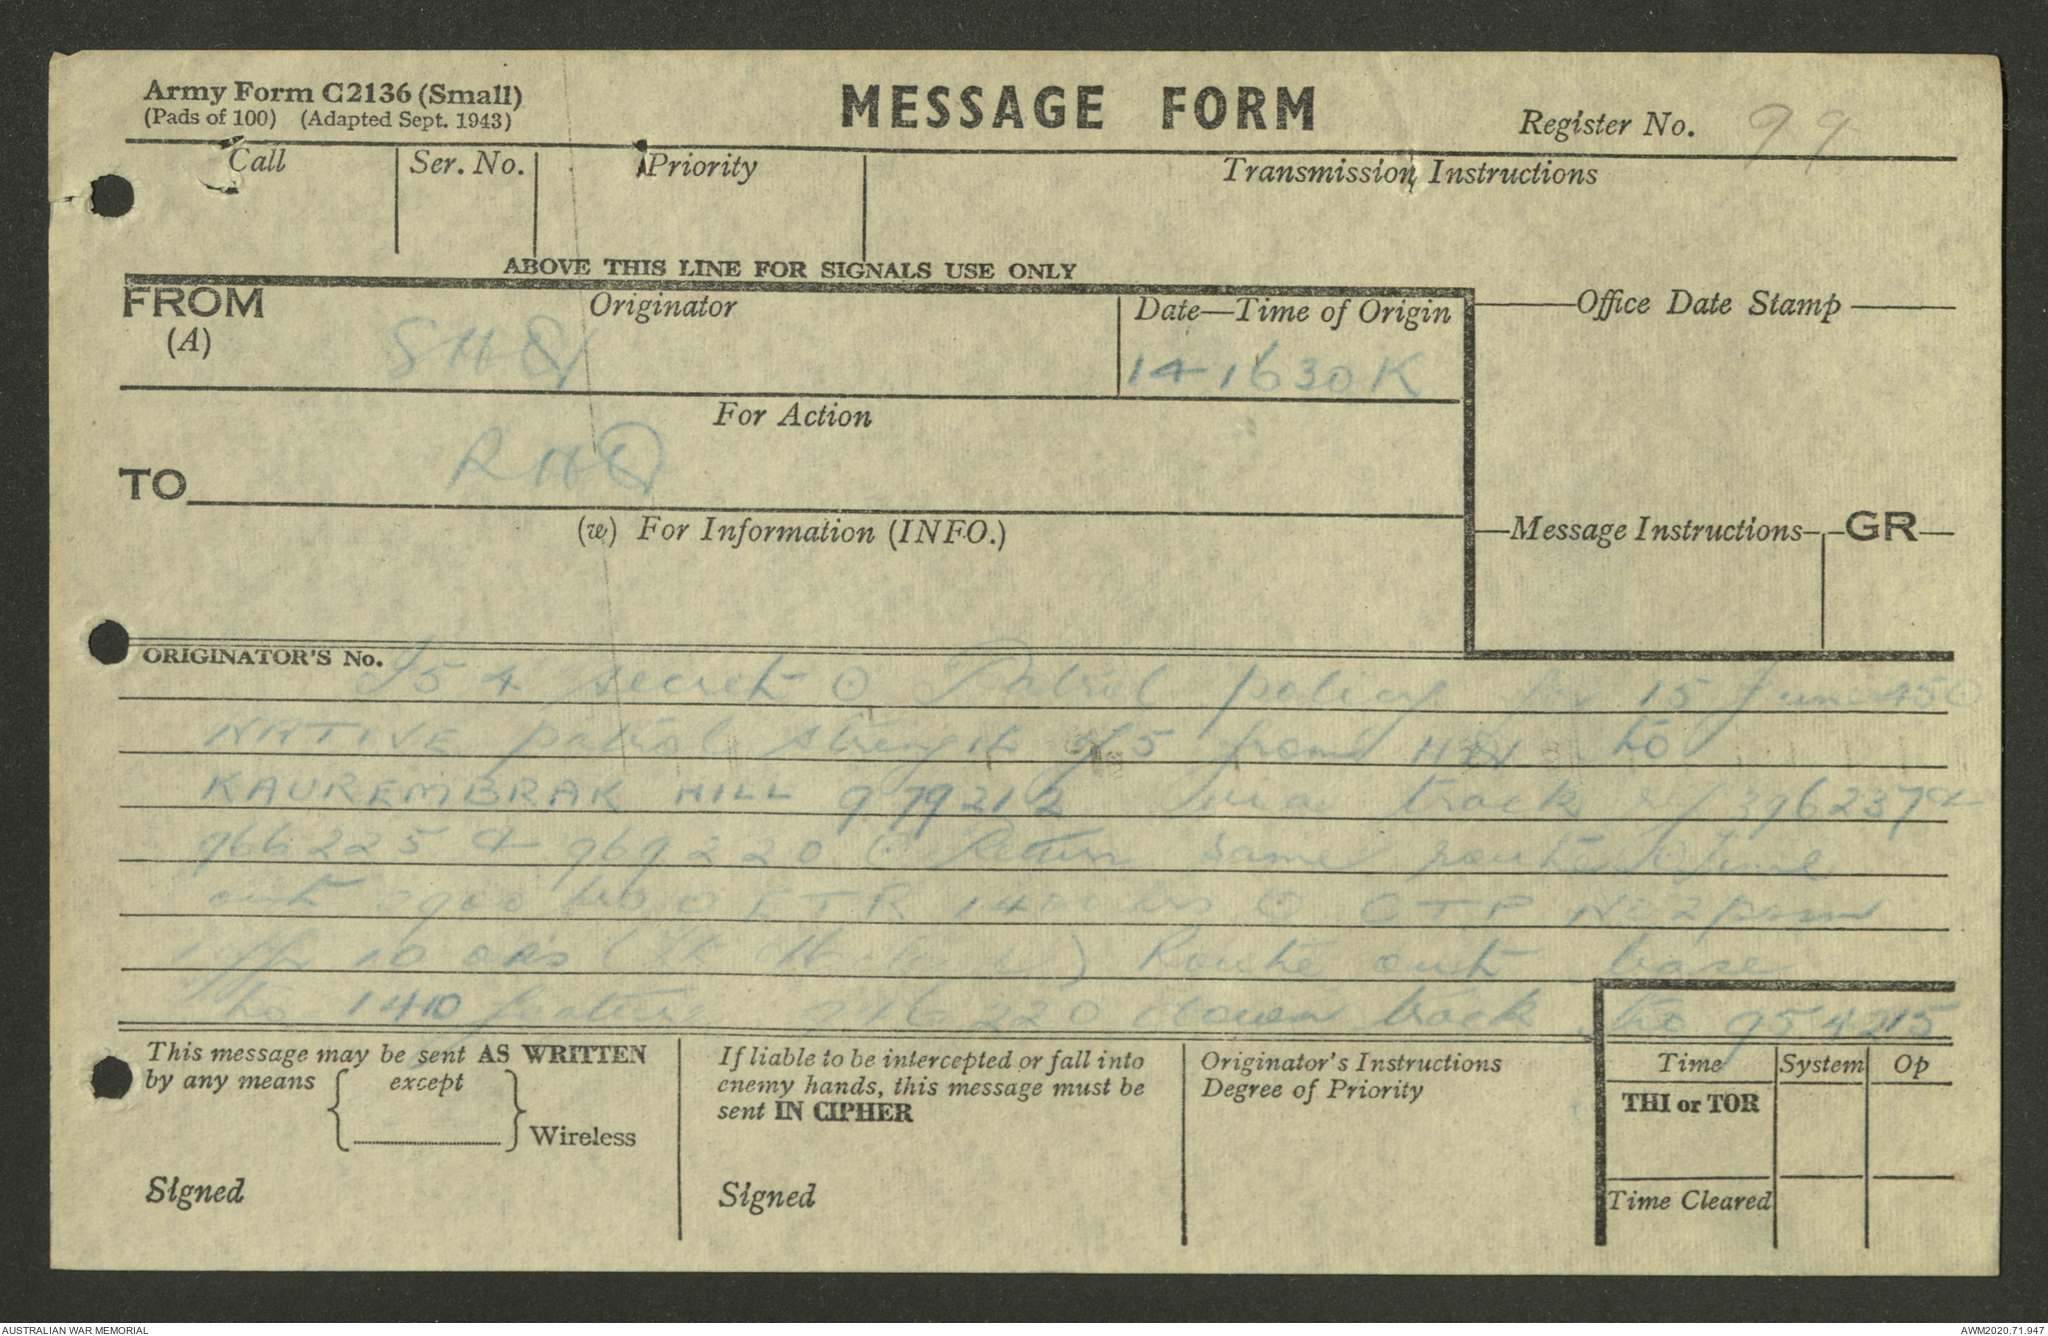 Army Form C2136 (Small)
(Pads of 100) (Adapted Sept. 1943)
MESSAGE FORM
Register No. 99
Call Ser. No. Priority Transmission Instructions
ABOVE THIS LINE FOR SIGNALS USE ONLY
FROM Originator Date—Time of Origin Office Date Stamp
(A) SHQ 141630K
For Action
RHQ
TO
(w) For Information (INFO.) Message Instructions GR
ORIGINATOR'S No.
54 secret ⊙ Patrol policy for 15 June 45 ⊙
NATIVE patrol strength of 5 from HQ to
KAUREMBRAK HILL 979212 via track ref 396237 &
966225 & 969220 ⊙ Return same route ⊙ Time
out 0900 hrs ⊙ ETR 1400 hrs ⊙ No 2
1 offr 10 ors (Lt Route out base
to 1410 feature 946220 down track to 954215
This message may be sent AS WRITTEN
by any means except
Wireless
Signed
If liable to be intercepted or fall into
enemy hands, this message must be
sent IN CIPHER
Signed
Originator's Instructions
Degree of Priority
Time System Op
THI or TOR
Time Cleared
AUSTRALIAN WAR MEMORIAL AWM2020.71.947